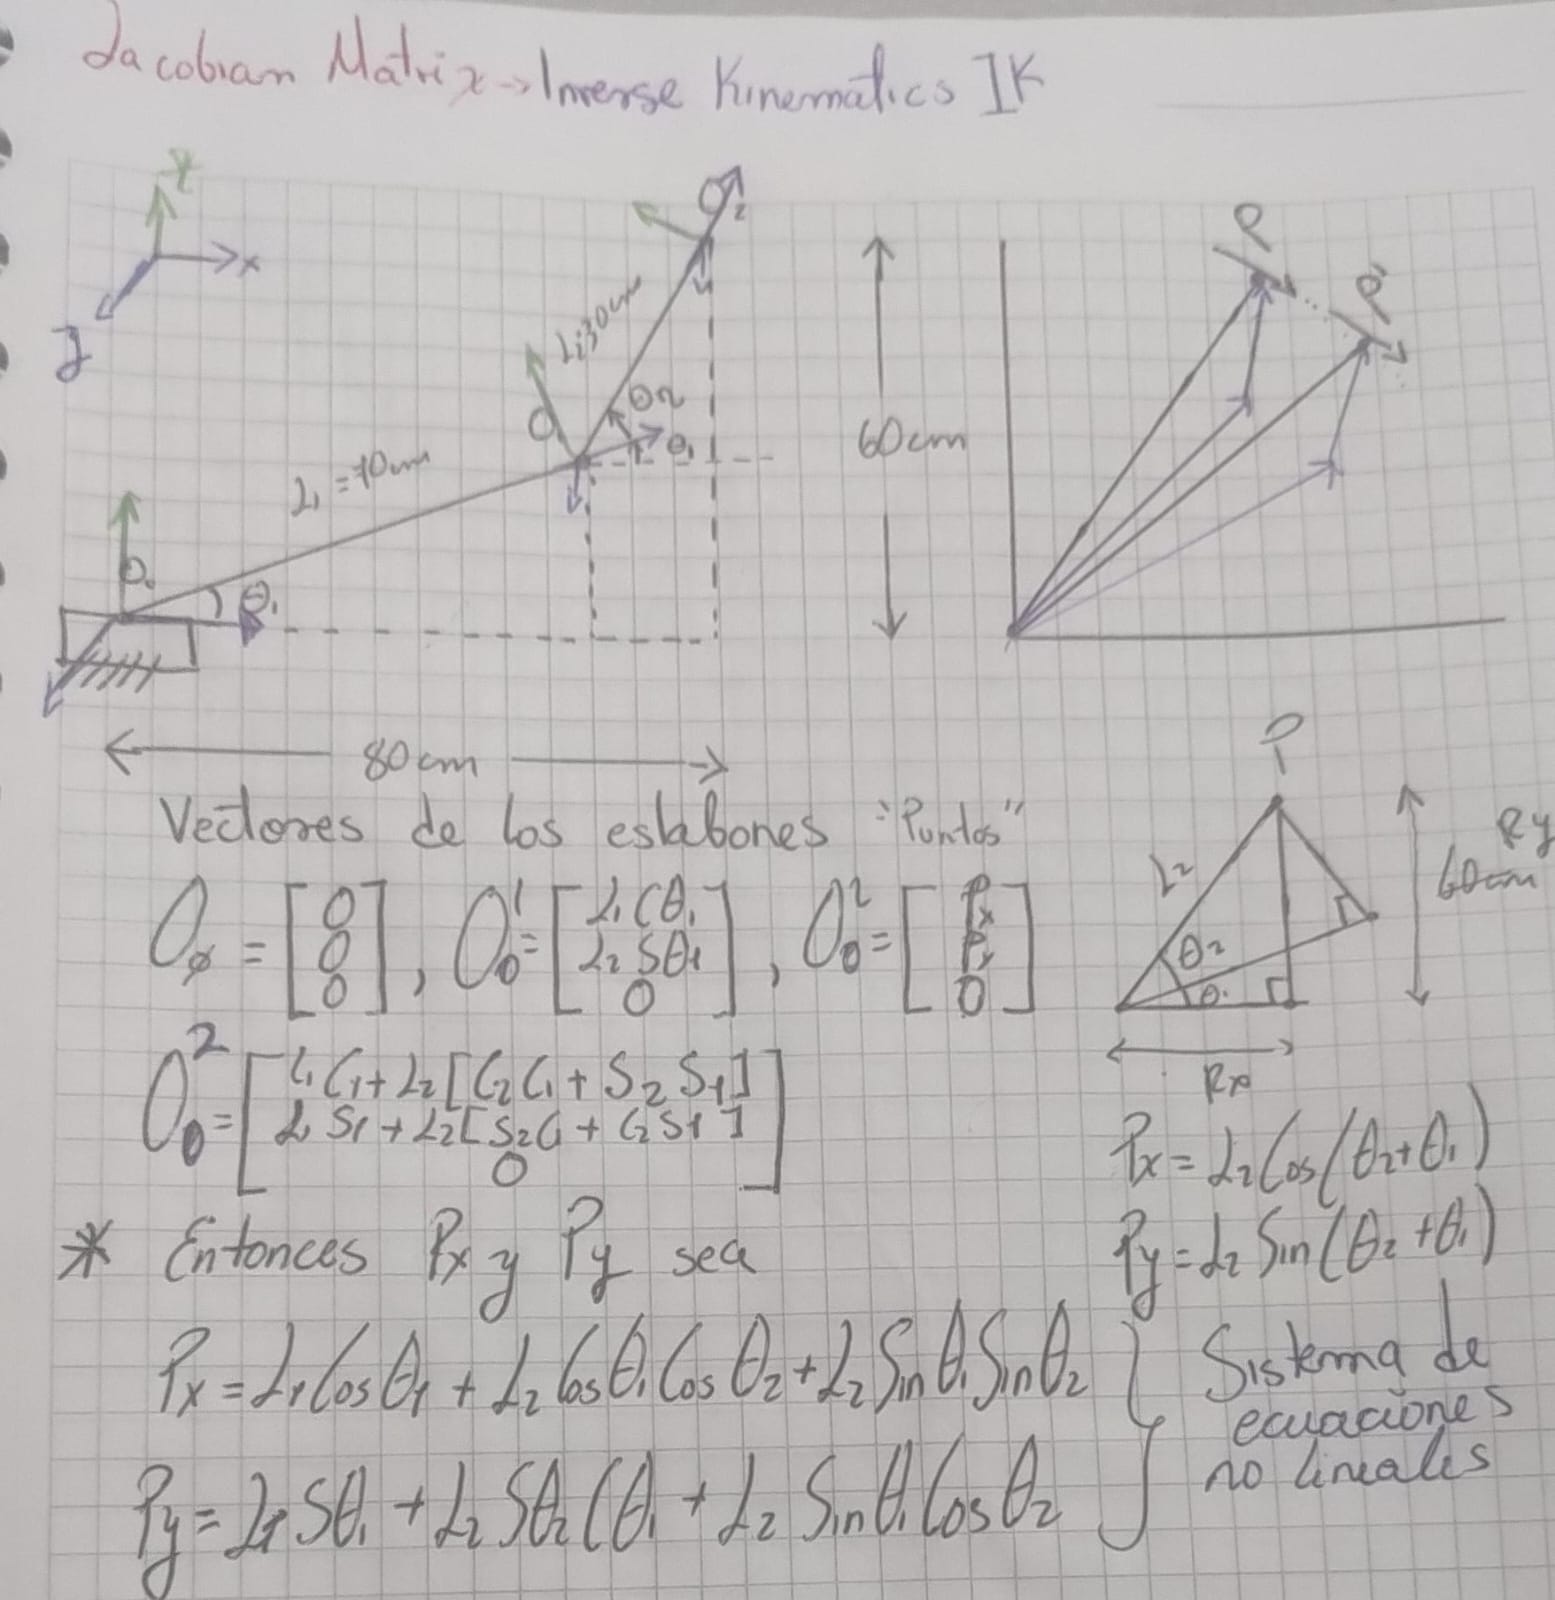 Jacobian Matrix → Inverse Kinematics IK
y
x
z
O₂
L₂=30cm
O₁
θ₂
θ₁
L₁ = 70cm
O₀
θ₁
60cm
P
P'
80cm
Vectores de los eslabones "Puntos"
O₀ = [0 0 0], O₀¹ = [L₁Cθ₁ L₂Sθ₁ 0], O₀² = [Px Py 0]
O₀² = [L₁C₁+L₂[C₂C₁+S₂S₁] L₁S₁+L₂[S₂C₁+C₂S₁] 0]
P
L₂
θ₂
θ₁
Ry
60cm
Rx
Px = L₂Cos(θ₂+θ₁)
Py = L₂Sin(θ₂+θ₁)
* Entonces Px y Py sea
Px = L₁Cosθ₁ + L₂Cosθ₁Cosθ₂ + L₂Sinθ₁Sinθ₂
Py = L₁Sθ₁ + L₂Sθ₂Cθ₁ + L₂Sinθ₁Cosθ₂
Sistema de
ecuaciones
no lineales